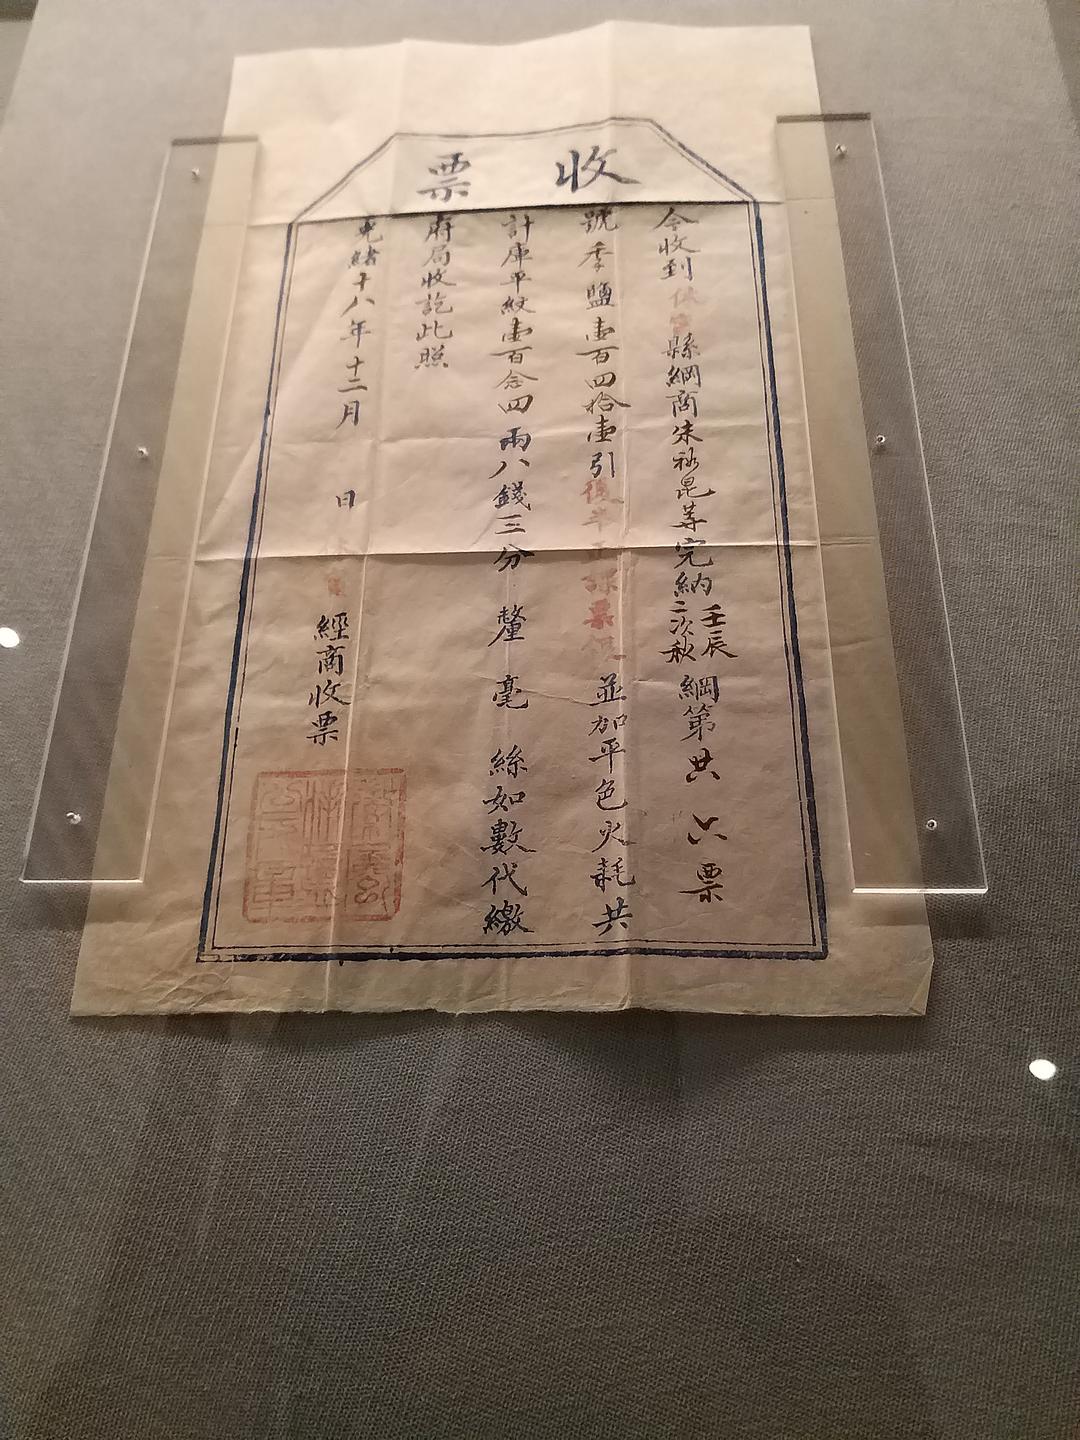 收票
今收到休寧縣綱商朱裕昆等完納壬辰二次秋綱第共六票
號季鹽壹百四拾壹引後半正課票價並加平色火耗共
計庫平紋壹百念四兩八錢三分釐毫絲如數代繳
府局收訖此照
光緒十八年十二月日
經商收票